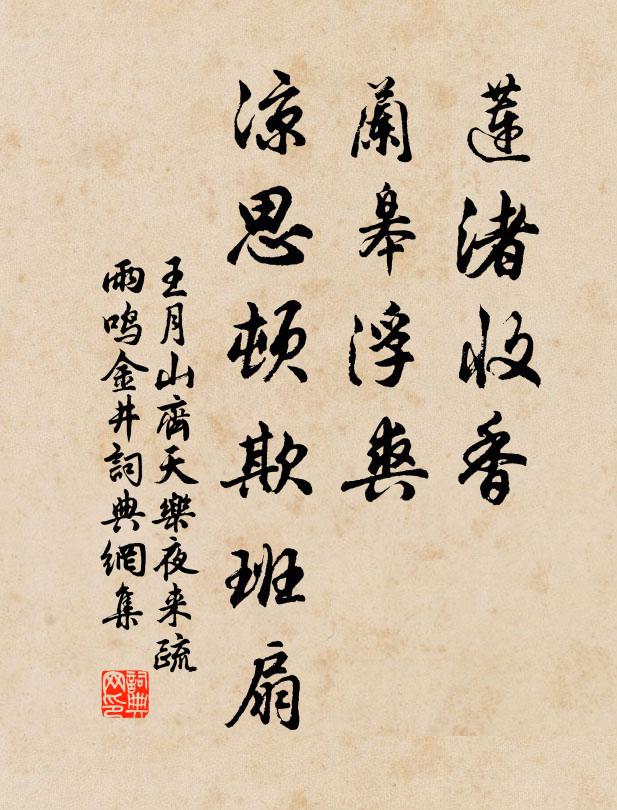 蓮渚收香
蘭皋浮爽
凉思頓欺班扇
王月山齊天樂夜来疏
雨鸣金井詞典網集
詞典
网印